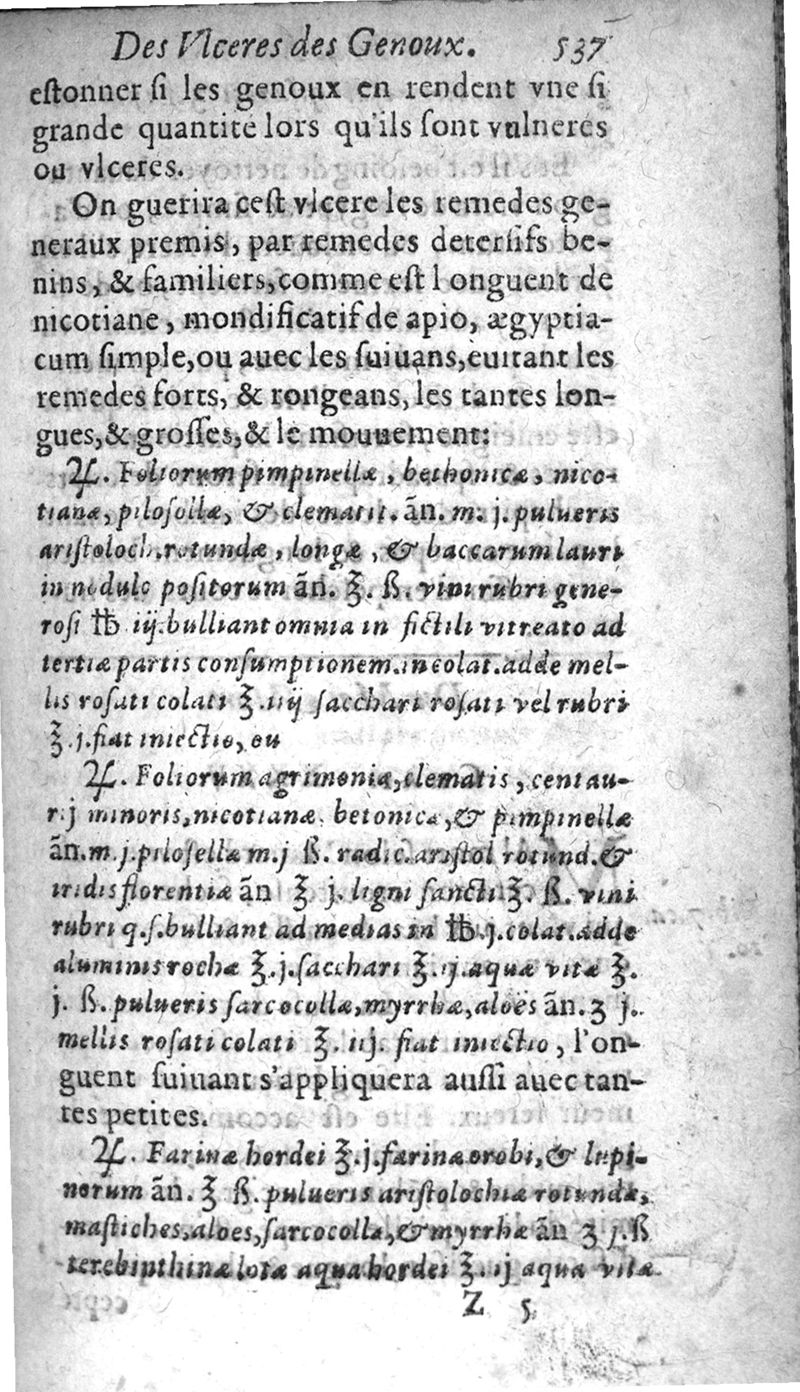 Des Vlceres des Genoux. 537
estonner si les genoux en rendent vne si
grande quantité lors qu'ils sont vulneres
ou vlceres.
On guerira cest vlcere les remedes ge-
neraux premis, par remedes detersifs be-
nins, & familiers, comme est l onguent de
nicotiane, mondificatif de apio, ægyptia-
cum simple, ou auec les suiuans, euitant les
remedes forts, & rongeans, les tantes lon-
gues, & grosses, & le mouuement:
℞. Foliorum pimpinellæ, bethonicæ, nico-
tianæ, pilosellæ, & clematit. ān. m. j. pulueris
aristoloch. rotundæ, longæ, & baccarum lauri
in nodulo positorum ān. ℥. ß. vini rubri gene-
rosi ℔ iij. bulliant omnia in fictili vitreato ad
tertiæ partis consumptionem. in colat. adde mel-
lis rosati colati ℥. iiij sacchari rosati vel rubri
℥. j. fiat iniectio, eu
℞. Foliorum agrimoniæ, clematis, centau-
rij minoris, nicotianæ, betonicæ, & pimpinellæ
ān. m. j. pilosellæ m. j ß. radic. aristol rotund. &
iridis florentiæ ān ℥ j. ligni sancti ℥. ß. vini
rubri q. s. bulliant ad medias in ℔ j. colat. adde
aluminis rochæ ℥. j. sacchari ℥. ij. aquæ vitæ ℥.
j. ß. pulueris sarcocollæ, myrrhæ, aloës ān. ʒ j.
mellis rosati colati ℥. iij. fiat iniectio, l'on-
guent suiuant s'appliquera aussi auec tan-
tes petites.
℞. Farinæ hordei ℥. j. farinæ orobi, & lupi-
norum ān. ℥ ß. pulueris aristolochiæ rotundæ,
mastiches, aloes, sarcocollæ, & myrrhæ ān ʒ j. ß
terebinthinæ lotæ aqua hordei ℥. ij aquæ vitæ
Z 5